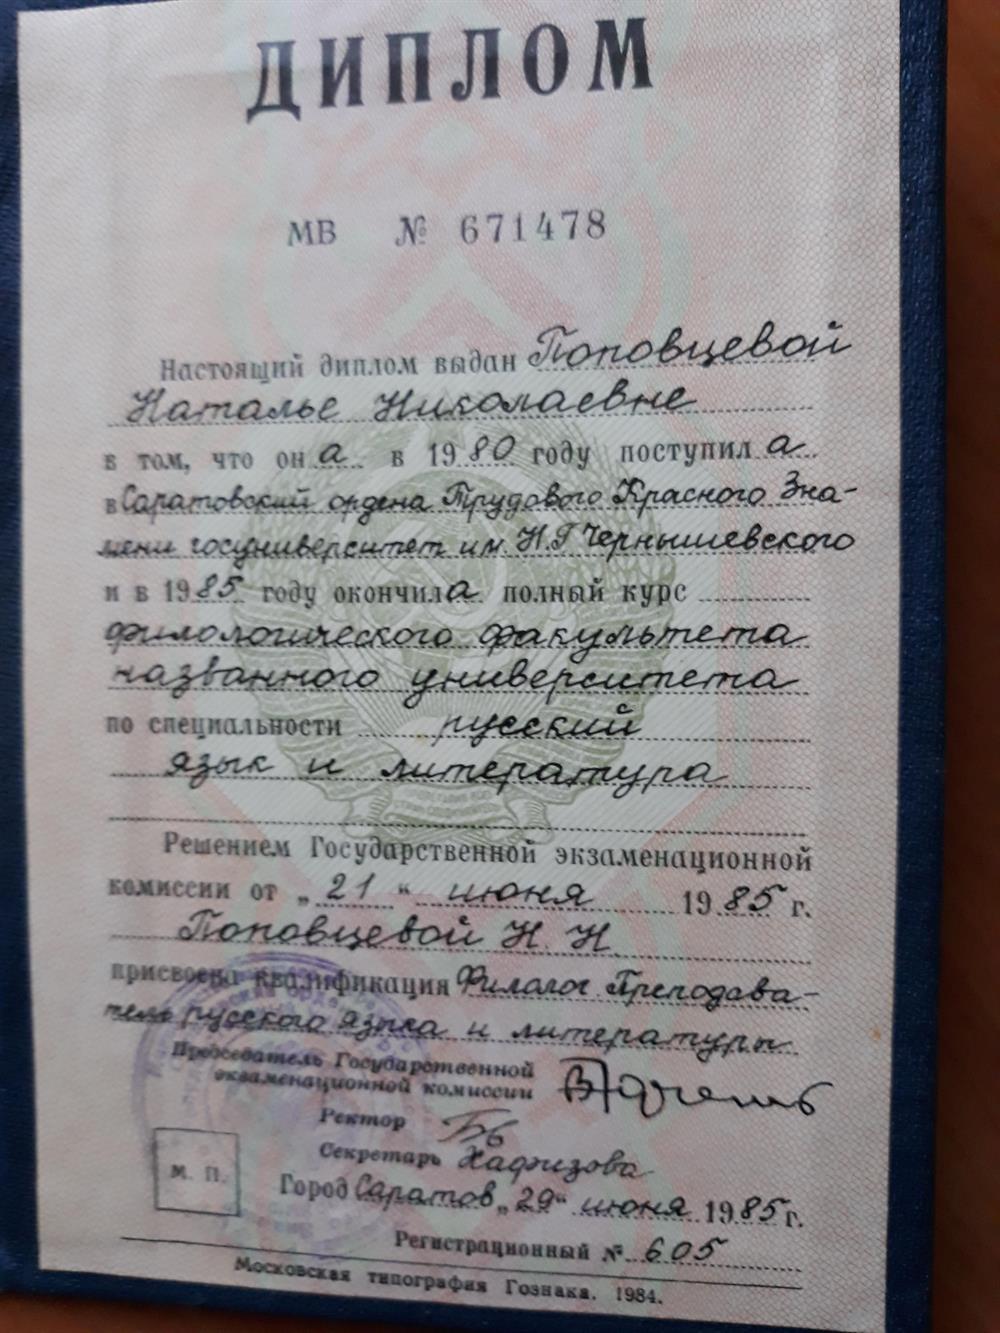 ДИПЛОМ
МВ № 671478
Настоящий диплом выдан Поповцевой
Наталье Николаевне
в том, что она в 1980 году поступила
в Саратовский ордена Трудового Красного Зна-
мени госуниверситет им. Н.Г Чернышевского
и в 1985 году окончила полный курс
филологического факультета
названного университета
по специальности русский
язык и литература
Решением Государственной экзаменационной
комиссии от „21“ июня 1985 г.
Поповцевой Н. Н.
присвоена квалификация Филолог. Преподава-
тель русского языка и литературы
Председатель Государственной
экзаменационной комиссии
Ректор
Секретарь Хафизова
М. П.
Город Саратов „29“ июня 1985 г.
Регистрационный № 605
Московская типография Гознака. 1984.